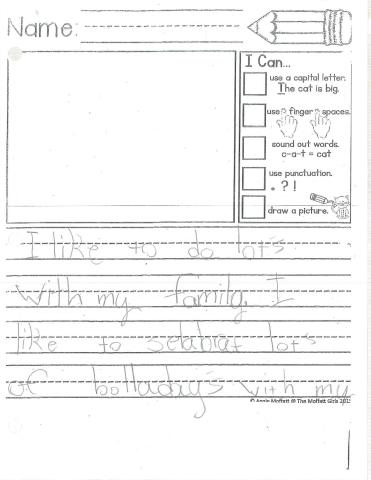 Name:
I Can...
use a capital letter.
The cat is big.
use finger spaces.
sound out words.
c-a-t = cat
use punctuation.
. ? !
draw a picture.
I like to do lot's
with my family. I
like to selabrat lot's
of holladay's with my
© Annie Moffatt @ The Moffatt Girls 201